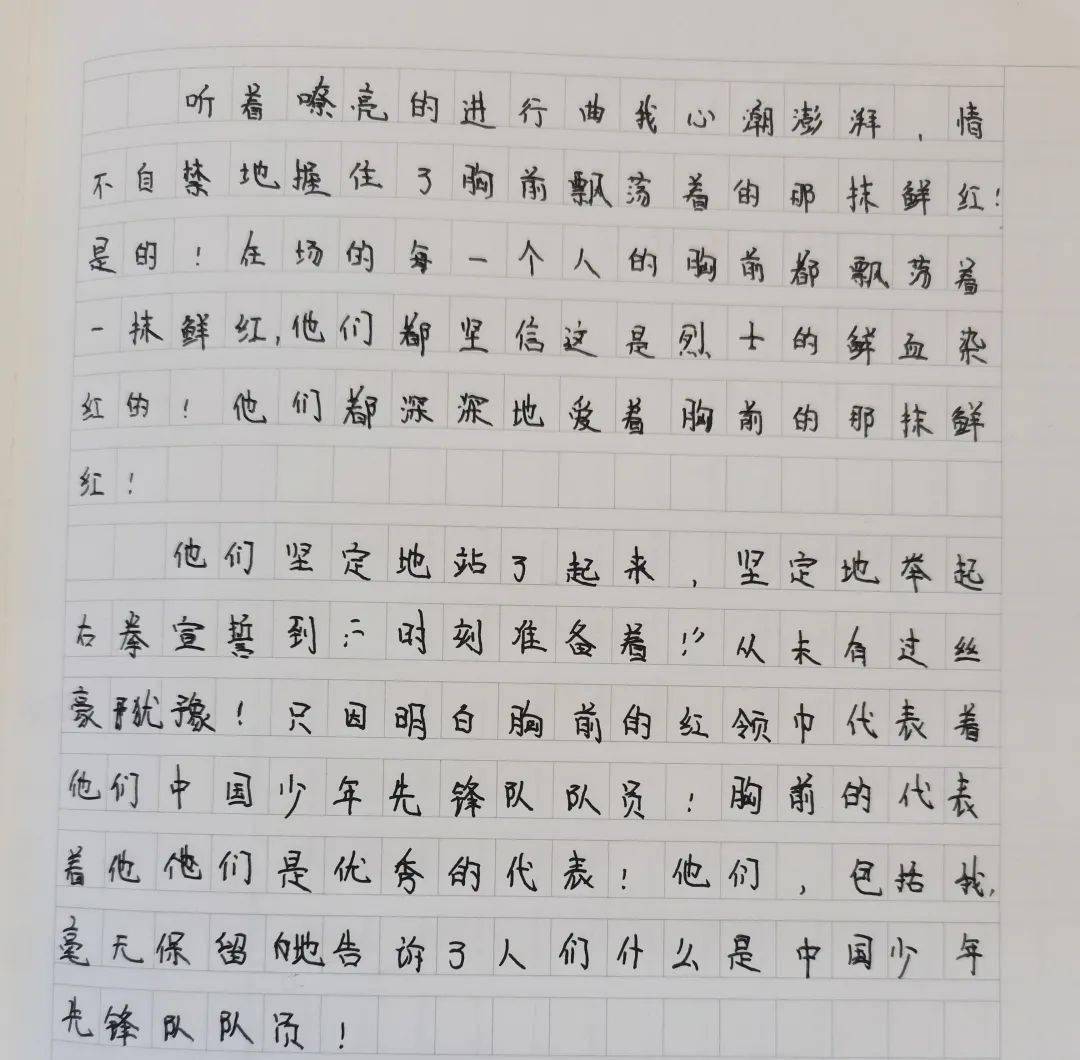 听着嘹亮的进行曲我心潮澎湃，情
不自禁地握住了胸前飘荡着的那抹鲜红！
是的！在场的每一个人的胸前都飘荡着
一抹鲜红，他们都坚信这是烈士的鲜血染
红的！他们都深深地爱着胸前的那抹鲜
红！
他们坚定地站了起来，坚定地举起
右拳宣誓到：“时刻准备着！”从未有过丝
豪犹豫！只因明白胸前的红领巾代表着
他们中国少年先锋队队员！胸前的代表
着他他们是优秀的代表！他们，包括我，
毫无保留地告诉了人们什么是中国少年
先锋队队员！